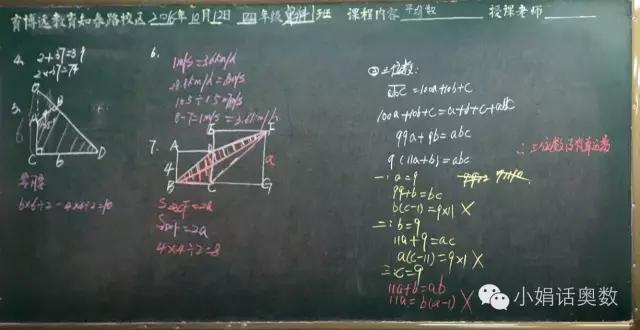 育博远教育知春路校区 2016年10月12日 四年级 班 课程内容 平均数 授课老师
4. 2+37=39
2×37=74
5.
A
B
C
b
D
6×6÷2-4×4÷2=10
6.
1m/s=3.6km/h
28.8km/h=8m/s
8-7=1m/s=3.6km/h
7.
A
E
F
4
B
C
G
a
=2a
=2a
4×4÷2=8
② 三位数:
abc=100a+10b+c
100a+10b+c=a+b+c+abc
99a+9b=abc
9(11a+b)=abc
一:a=9
99+b=bc
b(c-1)=9×11 X
二:b=9
11a+9=ac
a(c-11)=9×1 X
三:c=9
11a+b=ab
11a=b(a-1) X
∴三位数没有幸运号
小娟话奥数